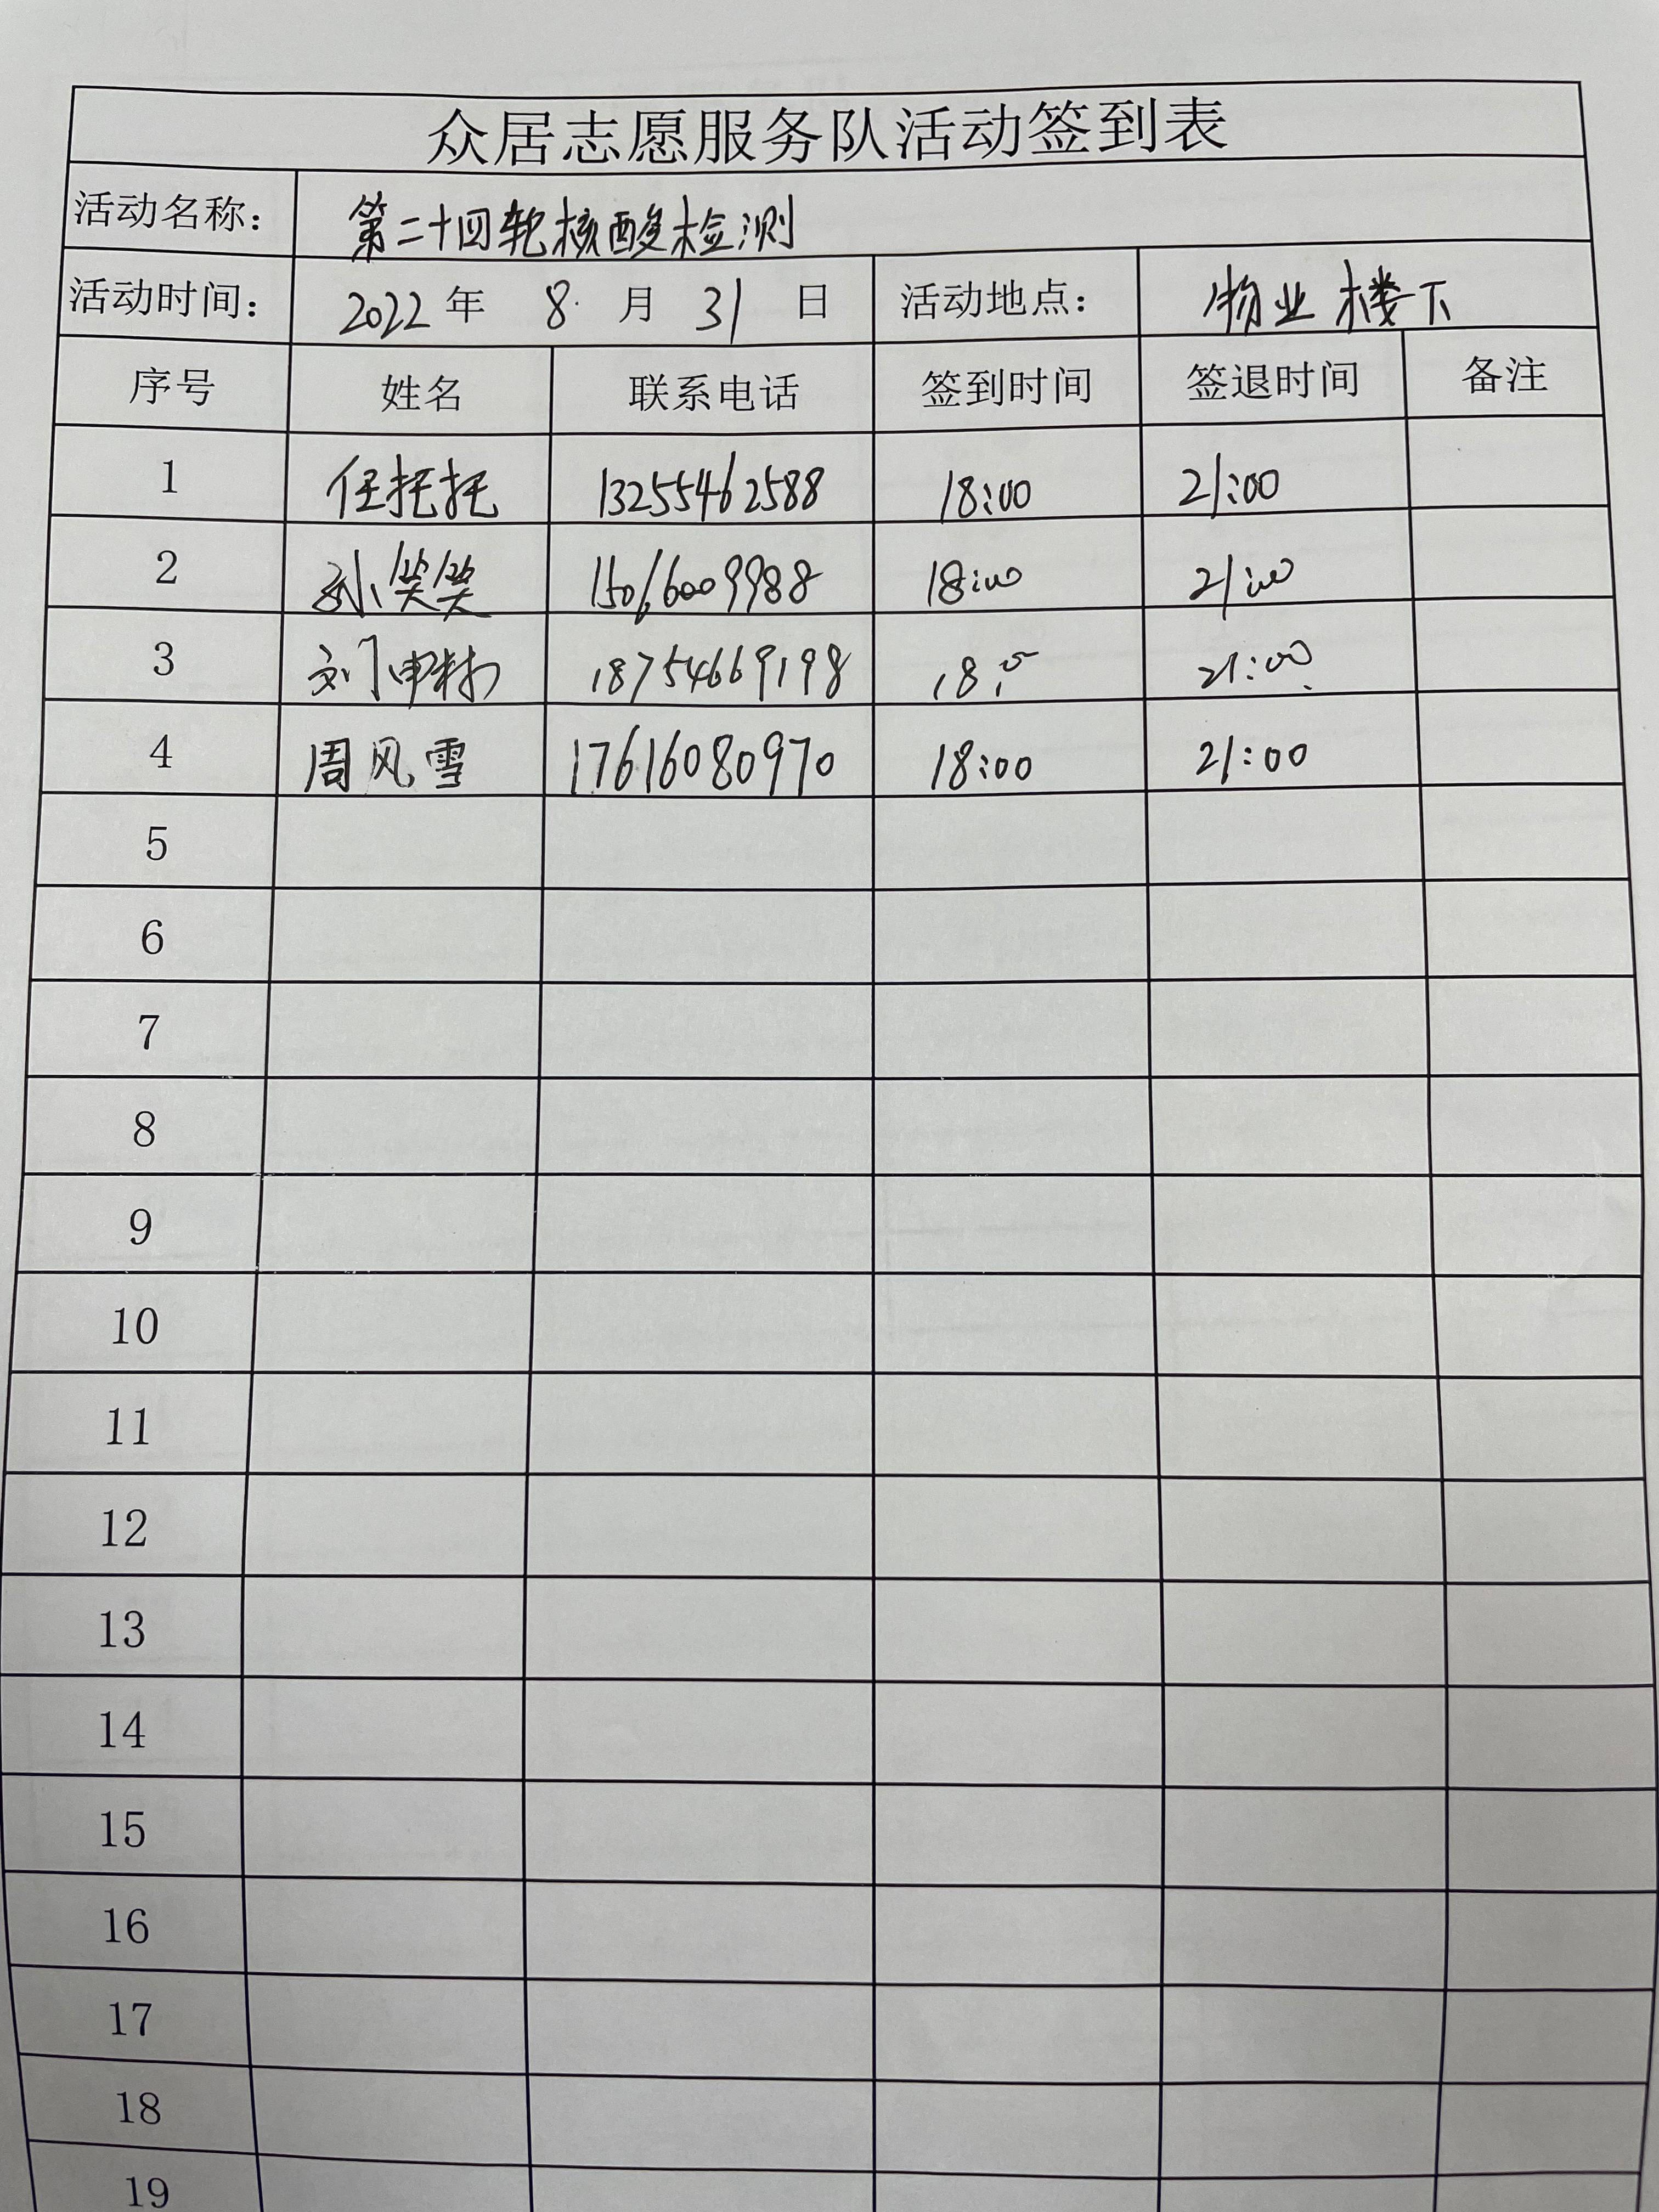 众居志愿服务队活动签到表
活动名称： 第二十四轮核酸检测
活动时间： 2022 年 8 月 31 日 活动地点： 物业楼下
序号 姓名 联系电话 签到时间 签退时间 备注
1 任托托 13255462588 18:00 21:00
2 孙笑笑 15016009988 18:00 21:00
3 18754669198 21:00
4 周风雪 17616080970 18:00 21:00
5
6
7
8
9
10
11
12
13
14
15
16
17
18
19